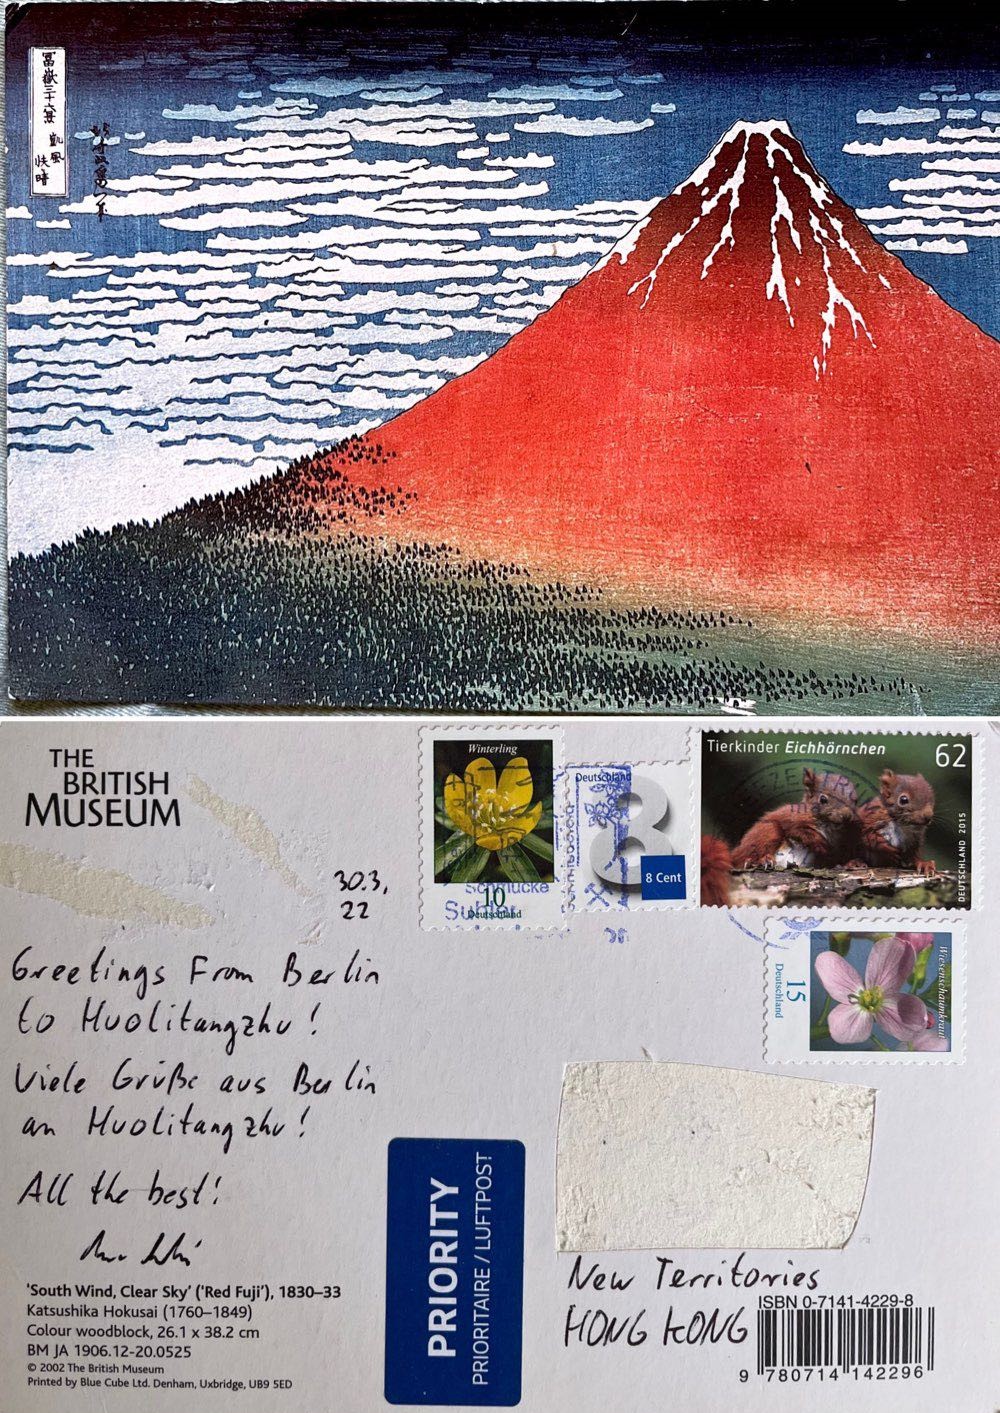 冨嶽三十六景 凱風
快晴
THE
BRITISH
MUSEUM
30.3.
22
Greetings From Berlin
to Huolitangzhu!
Viele Grüße aus Berlin
an Huolitangzhu!
All the best!
'South Wind, Clear Sky' ('Red Fuji'), 1830–33
Katsushika Hokusai (1760–1849)
Colour woodblock, 26.1 x 38.2 cm
BM JA 1906.12-20.0525
© 2002 The British Museum
Printed by Blue Cube Ltd. Denham, Uxbridge, UB9 5ED
PRIORITY
PRIORITAIRE / LUFTPOST
Winterling
10
Deutschland
Schmucke
Deutschland
8
8 Cent
Tierkinder Eichhörnchen 62
DEUTSCHLAND 2015
15
Deutschland
Wiesenschaumkraut
New Territories
HONG KONG
ISBN 0-7141-4229-8
9 780714 142296